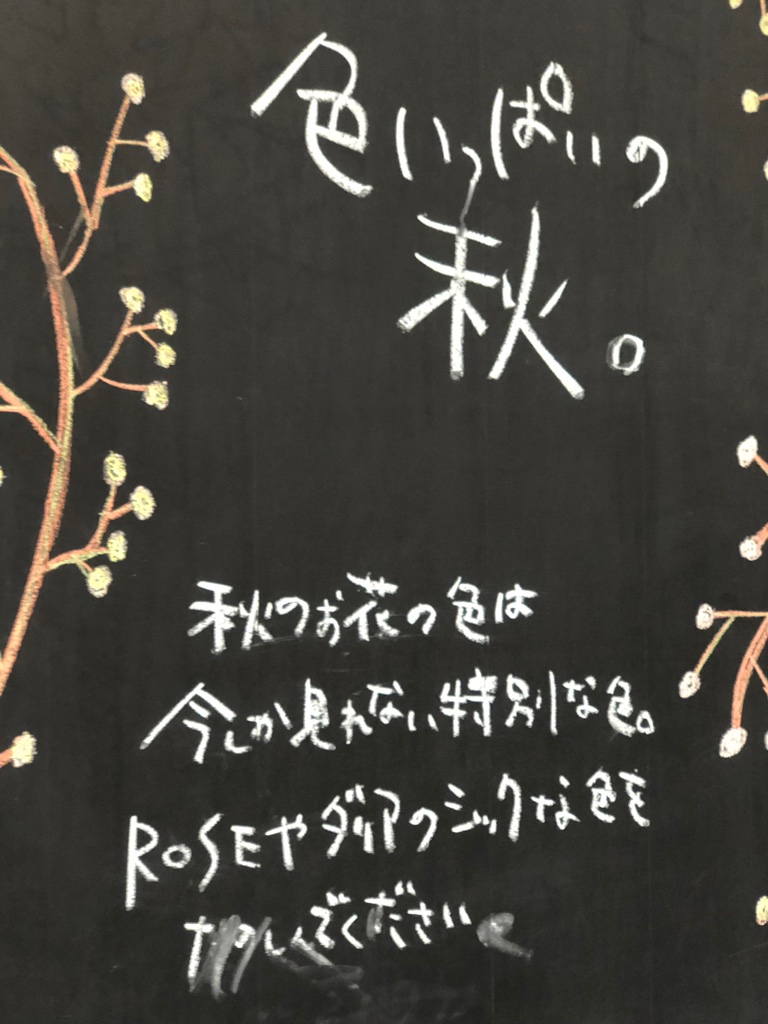 色いっぱいの
秋。
秋のお花の色は
今しか見れない特別な色。
ROSEやダリアのシックな色を
たのしんでください